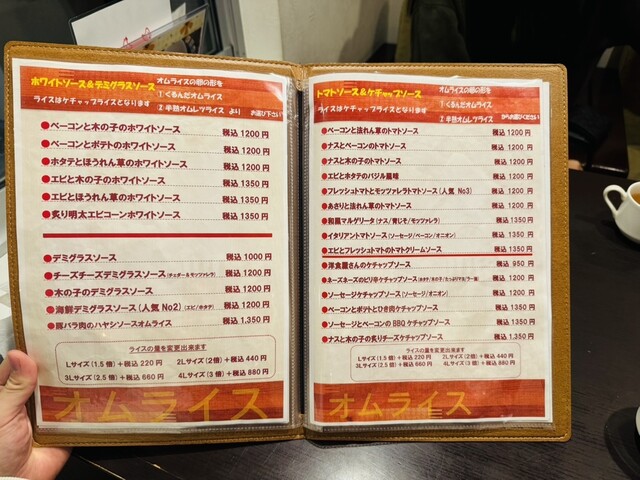 ホワイトソース&デミグラスソース
ライスはケチャップライスとなります
オムライスの卵の形を
①くるんだオムライス
②半熟オムレツライス より お選び下さい
●ベーコンと木の子のホワイトソース 税込 1200 円
●ベーコンとポテトのホワイトソース 税込 1200 円
●ホタテとほうれん草のホワイトソース 税込 1200 円
●エビと木の子のホワイトソース 税込 1350 円
●エビとほうれん草のホワイトソース 税込 1350 円
●炙り明太エビコーンホワイトソース 税込 1350 円
●デミグラスソース 税込 1000 円
●チーズチーズデミグラスソース(チェダー&モッツァレラ) 税込 1200 円
●木の子のデミグラスソース 税込 1200 円
●海鮮デミグラスソース(人気 No2)(エビ/ホタテ) 税込 1200 円
●豚バラ肉のハヤシソースオムライス 税込 1,350 円
ライスの量を変更出来ます
Lサイズ(1.5 倍)+税込 220 円 2Lサイズ(2倍)+税込 440 円
3Lサイズ(2.5 倍)+税込 660 円 4Lサイズ(3 倍)+税込 880 円
オムライス
トマトソース&ケチャップソース
ライスはケチャップライスとなります
オムライスの卵の形を
①くるんだオムライス
②半熟オムレツライス からお選びください
●ベーコンと法れん草のトマトソース 税込 1200 円
●ナスとベーコンのトマトソース 税込 1200 円
●ナスと木の子のトマトソース 税込 1200 円
●エビとホタテのバジル風味 税込 1200 円
●フレッシュトマトとモッツァレラトマトソース(人気 No3) 税込 1200 円
●あさりと法れん草のトマトソース 税込 1200 円
●和風マルゲリータ(ナス/青じそ/モッツァレラ) 税込 1350 円
●イタリアントマトソース(ソーセージ/ベーコン/オニオン) 税込 1350 円
●エビとフレッシュトマトのトマトクリームソース 税込 1350 円
●洋食屋さんのケチャップソース 税込 950 円
●ネーズネーズのピリ辛ケチャップソース 税込 1200 円
●ソーセージケチャップソース(ソーセージ/オニオン) 税込 1200 円
●ベーコンとポテトとひき肉ケチャップソース 税込 1350 円
●ソーセージとベーコンの BBQ ケチャップソース 税込 1350 円
●ナスと木の子の炙りチーズケチャップソース 税込 1350 円
ライスの量を変更出来ます
Lサイズ(1.5 倍)+税込 220 円 2Lサイズ(2倍)+税込 440 円
3Lサイズ(2.5 倍)+税込 660 円 4Lサイズ(3 倍)+税込 880 円
オムライス